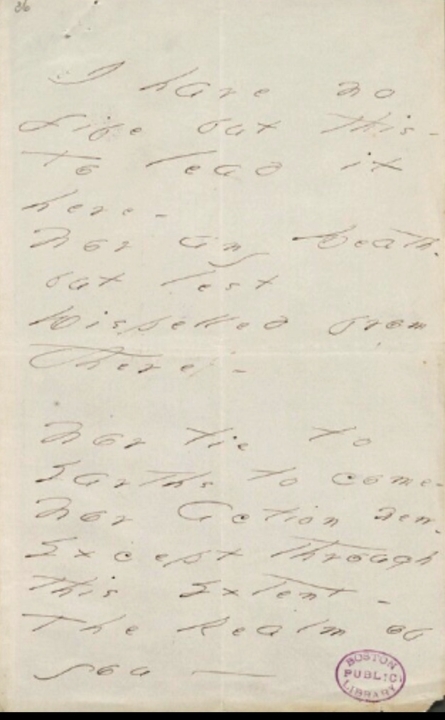 I have no
Life but this -
To lead it
here -
Nor any Death -
but lest
Dispelled from
there -
Nor tie to
Earths to come -
Nor Action new -
Except through
this Extent -
The Realm of
you —
BOSTON
PUBLIC
LIBRARY